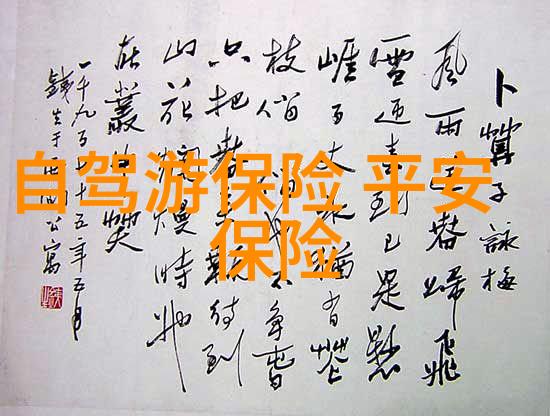 自驾游保险 平安
保险
卜算子詠梅
風雨送春歸飛
雪迎春到已是懸
崖百丈冰猶有花
枝俏俏也不爭春
只把春来報待到
山花爛熳時她
在叢中笑
一千九百七十五年五月
于西湖公寓